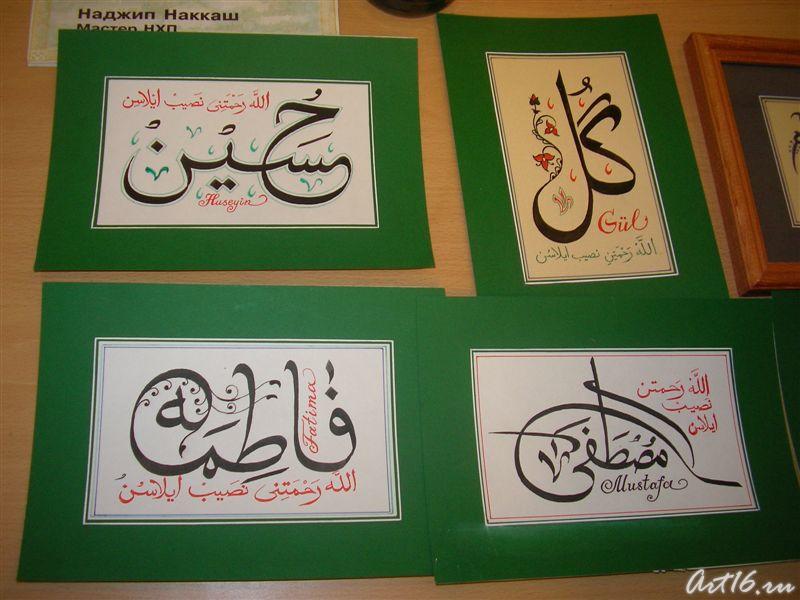 Наджип Наккаш
Мастер НХП
الله رَحْمَتِنى نَصِيبْ ايْلاسن
حُسَيْنْ
Huseyin
كُل
Gül
الله رَحْمَتِنِ نصيب ايلاسُن
فاطِمَه
Fatima
الله رَحْمَتِنِى نَصِيبْ ايلاسُنْ
الله رحمتن
نصيب
ايلاسن
مُصْطَفَى
Mustafa
Art16.ru